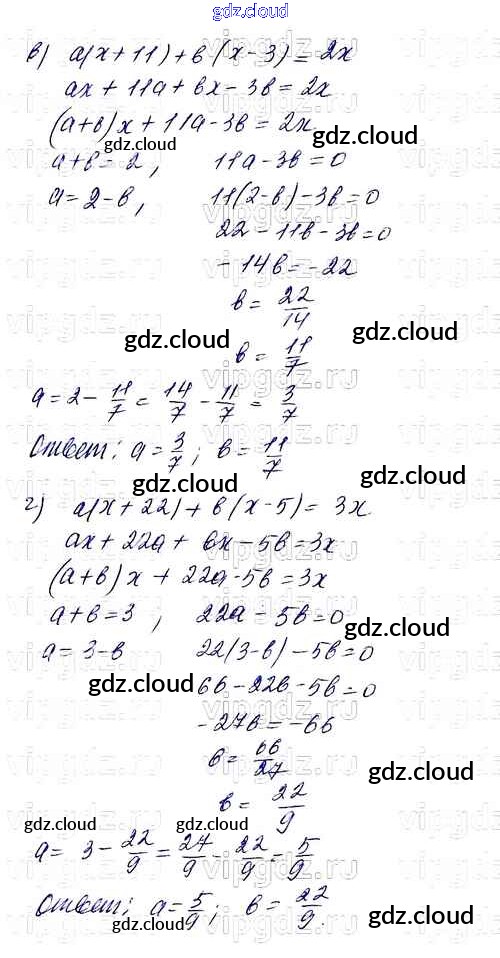 gdz.cloud
в) a(x + 11) + в(x - 3) = 2x
ax + 11a + вx - 3в = 2x
(a+в)x + 11a - 3в = 2x
gdz.cloud
a+в = 2, 11a - 3в = 0
a = 2 - в, 11(2-в) - 3в = 0
22 - 11в - 3в = 0
- 14в = - 22
в = 22/14
gdz.cloud gdz.cloud
в = 11/7
a = 2 - 11/7 = 14/7 - 11/7 = 3/7
Ответ: a = 3/7; в = 11/7
gdz.cloud gdz.cloud
г) a(x + 22) + в(x - 5) = 3x
ax + 22a + вx - 5в = 3x
(a+в)x + 22a - 5в = 3x
a + в = 3, 22a - 5в = 0
gdz.cloud
a = 3-в 22(3-в) - 5в = 0
gdz.cloud
66 - 22в - 5в = 0
- 27в = - 66
в = 66/27
gdz.cloud
в = 22/9
gdz.cloud gdz.cloud
a = 3 - 22/9 = 27/9 - 22/9 = 5/9
gdz.cloud
Ответ: a = 5/9; в = 22/9.
gdz.cloud